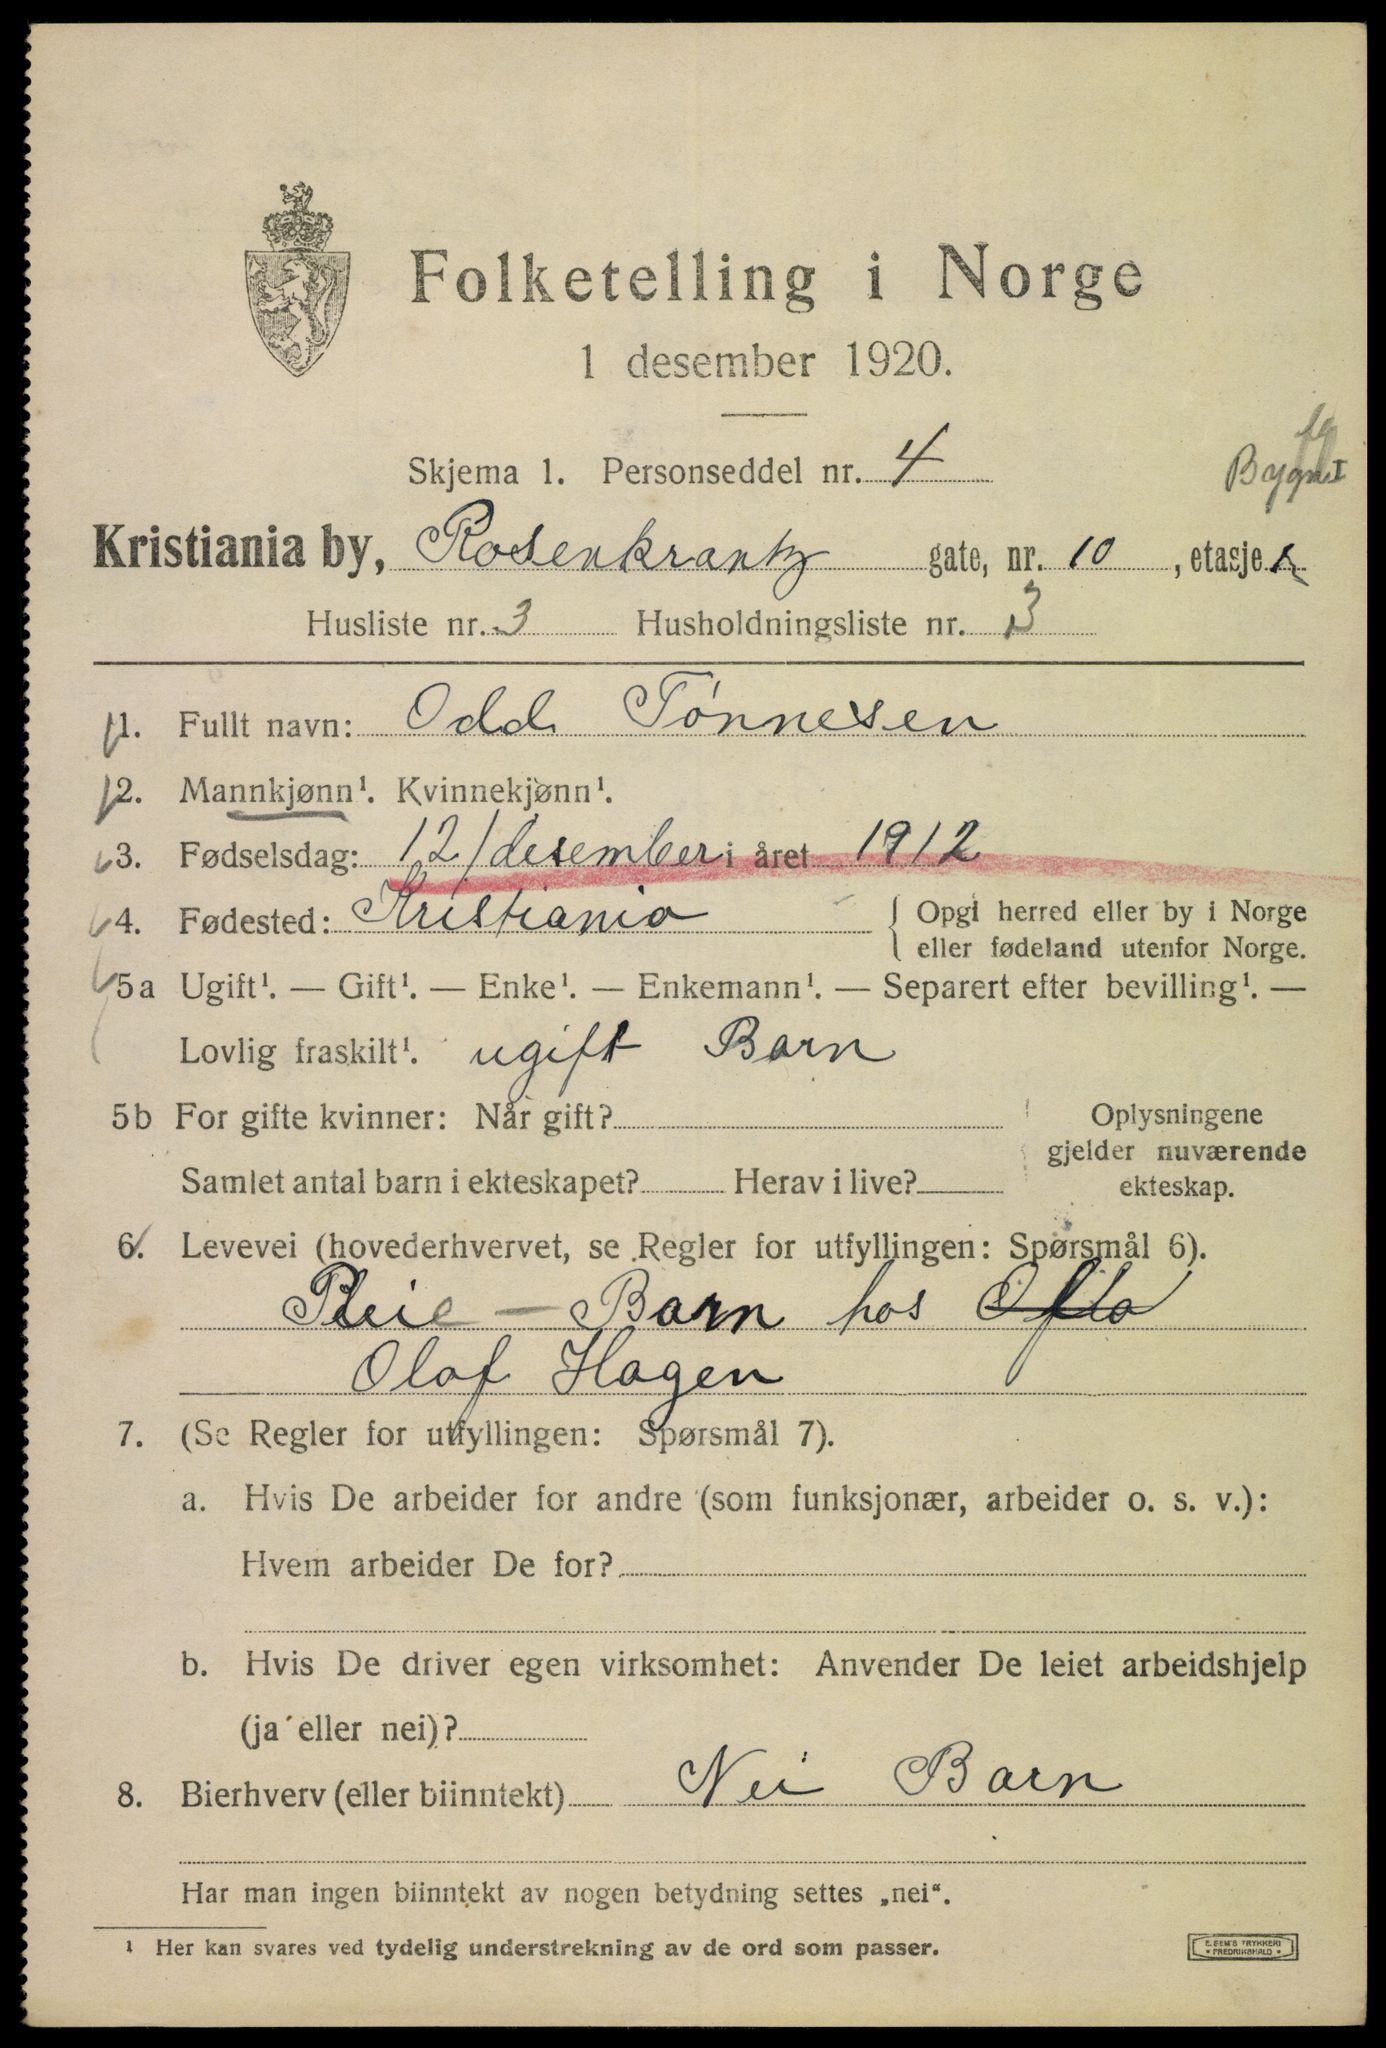 Folketelling i Norge
1 desember 1920.
Skjema 1. Personseddel nr. 4
Kristiania by, Rosenkrantz gate, nr. 10, etasje
Husliste nr. 3 Husholdningsliste nr. 3
1. Fullt navn: Odd Tönnesen
2. Mannkjønn¹. Kvinnekjønn¹.
3. Fødselsdag: 12/desember i året 1912
4. Fødested: Kristiania { Opgi herred eller by i Norge
eller fødeland utenfor Norge.
5a Ugift¹. — Gift¹. — Enke¹. — Enkemann¹. — Separert efter bevilling¹. —
Lovlig fraskilt¹. ugift Barn
5b For gifte kvinner: Når gift? Oplysningene
gjelder nuværende
Samlet antal barn i ekteskapet? Herav i live? ekteskap.
6. Levevei (hovederhvervet, se Regler for utfyllingen: Spørsmål 6).
Pleie-Barn hos
Olaf Hagen
7. (Se Regler for utfyllingen: Spørsmål 7).
a. Hvis De arbeider for andre (som funksjonær, arbeider o. s. v.):
Hvem arbeider De for?
b. Hvis De driver egen virksomhet: Anvender De leiet arbeidshjelp
(ja eller nei)?
8. Bierhverv (eller biinntekt) Nei Barn
Har man ingen biinntekt av nogen betydning settes „nei“.
¹ Her kan svares ved tydelig understrekning av de ord som passer.
E. SEM'S TRYKKERI
• FREDRIKSHALD •